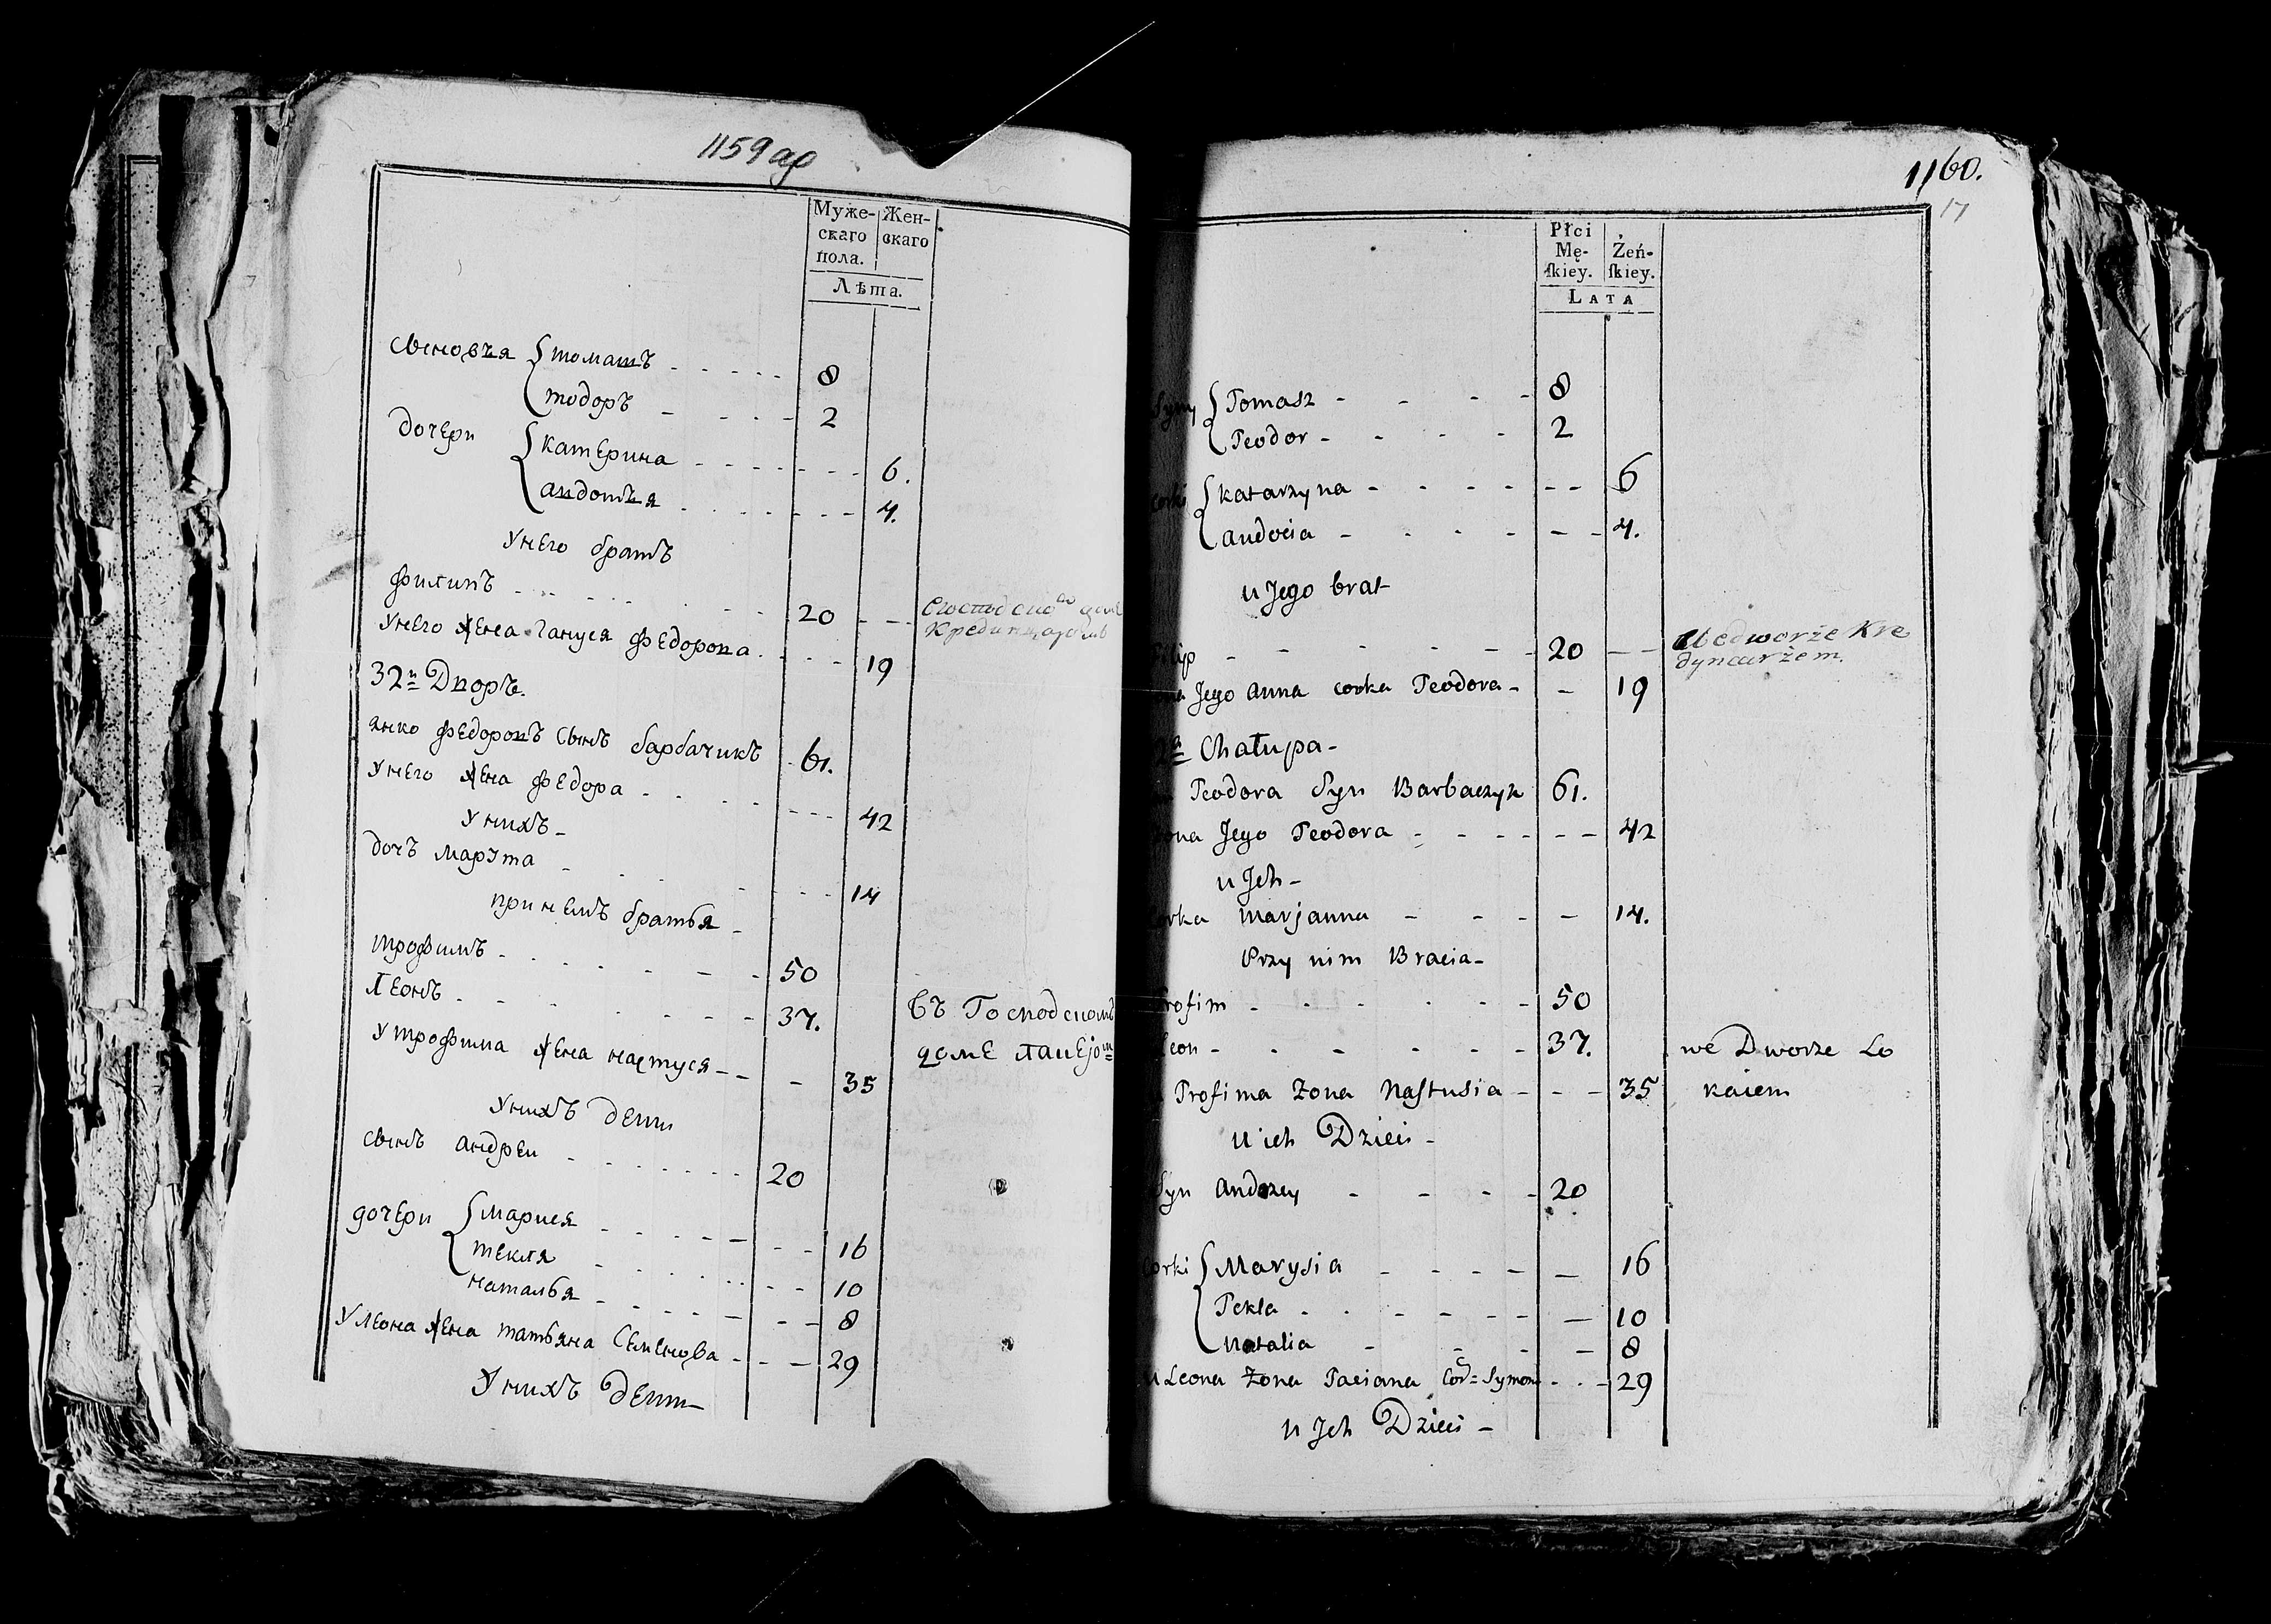 1159 об
Муже- Жен-
скаго скаго
пола.
Лѣта.
Сыновъя { томашъ - - - - - 8
тодоръ - - - - 2
дочери { катерина - - - - - - - 6.
андотъя - - - - - - - 4.
Унего братъ
филипъ - - - - - 20 - -
Унего жена Гануся федорова - - - - 19
32й Дворъ.
янко федоровъ сынъ барбачикъ 61.
Унего жена федора - - - - - 42
Унихъ -
дочъ марута - - - - - 14
принемъ братья -
трофимъ - - - - - - - 50
Леонъ - - - - - - 37. въ Господскомъ
доме
Утрофима жена настуся - - - 35
Унихъ дети
сынъ андреи - - - - - - - 20
дочери { марися - - - - - - - 16
текля - - - - - - - 10
наталья - - - - - - - 8
Улеона жена татьяна Семенова - - - 29
Унихъ дети -
1160.
17
Płci
Mę- Żeń-
ſkiey. ſkiey.
LATA
Syny { Tomasz - - - - 8
Teodor - - - - 2
corki { katarzyna - - - - - - 6
andocia - - - - - - 4.
u Jego brat
Filip - - - - - - 20 - - We dworże Kre
dyncarżem.
Jego anna corka Teodora - - 19
Chałupa -
Teodora Syn Barbaczyk 61.
żona Jego Teodora - - - - - 42
u Jch -
corka marjanna - - - - 14.
Przy nim Bracia -
Trofim - - - - - - 50
Leon - - - - - - 37. we Dworze Lo
kaiem
Trofima żona Naſtusia - - - 35
u ich Dzieci -
Syn andrzey - - - - 20
corki { Marysia - - - - - 16
Tekla - - - - - - 10
Natalia - - - - 8
u Leona żona Taciana Cor= Symon - - - 29
u Jch Dzieci -